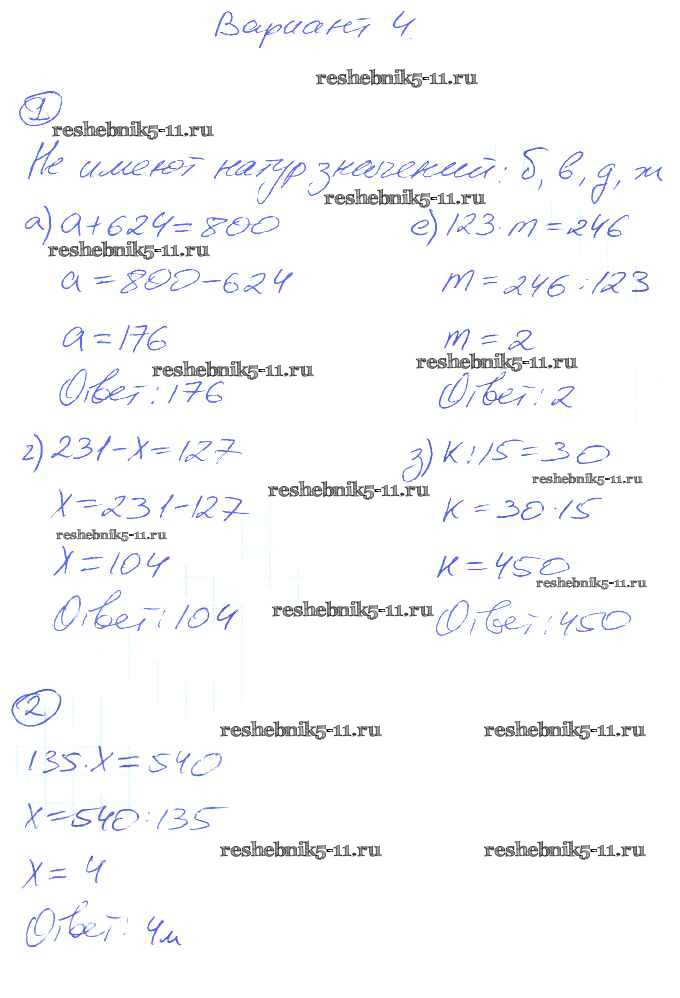 Вариант 4
reshebnik5-11.ru
1
reshebnik5-11.ru
Не имеют натур значений: б, в, д, ж
reshebnik5-11.ru
а) a+624=800
reshebnik5-11.ru
a=800-624
a=176
reshebnik5-11.ru
Ответ: 176
е) 123·m=246
m=246:123
m=2
reshebnik5-11.ru
Ответ: 2
г) 231-x=127
reshebnik5-11.ru
x=231-127
reshebnik5-11.ru
x=104
Ответ: 104
reshebnik5-11.ru
з) k:15=30
reshebnik5-11.ru
k=30·15
k=450
reshebnik5-11.ru
Ответ: 450
2
reshebnik5-11.ru reshebnik5-11.ru
135·x=540
x=540:135
reshebnik5-11.ru reshebnik5-11.ru
x=4
Ответ: 4м